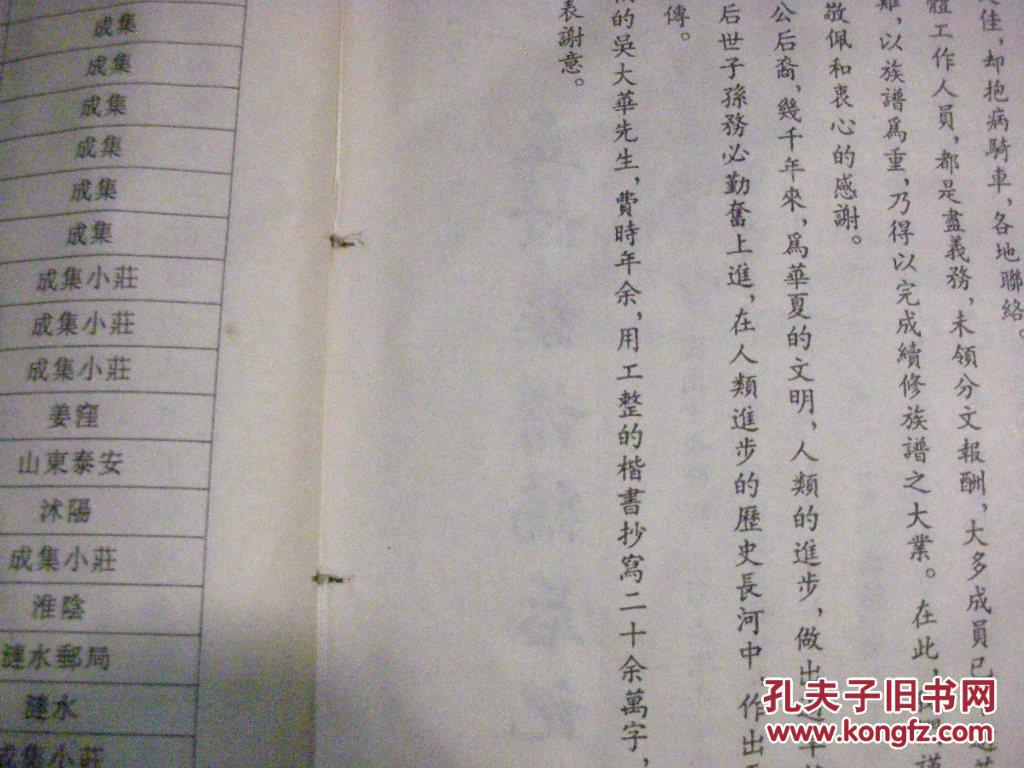 成集
成集
成集
成集
成集
成集
成集小莊
成集小莊
成集小莊
姜窪
山東泰安
沭陽
成集小莊
淮陰
漣水郵局
漣水
成集小莊
佳，却抱病騎車，各地聯絡。
體工作人員，都是盡義務，未領分文報酬，大多成員已
難，以族譜爲重，乃得以完成續修族譜之大業。在此，
敬佩和衷心的感謝。
公后裔，幾千年來，爲華夏的文明，人類的進步，做出
后世子孫務必勤奮上進，在人類進步的歷史長河中，作出
傳。
的吳大華先生，費時年余，用工整的楷書抄寫二十余萬字，
表謝意。
孔夫子旧书网
www.kongfz.com